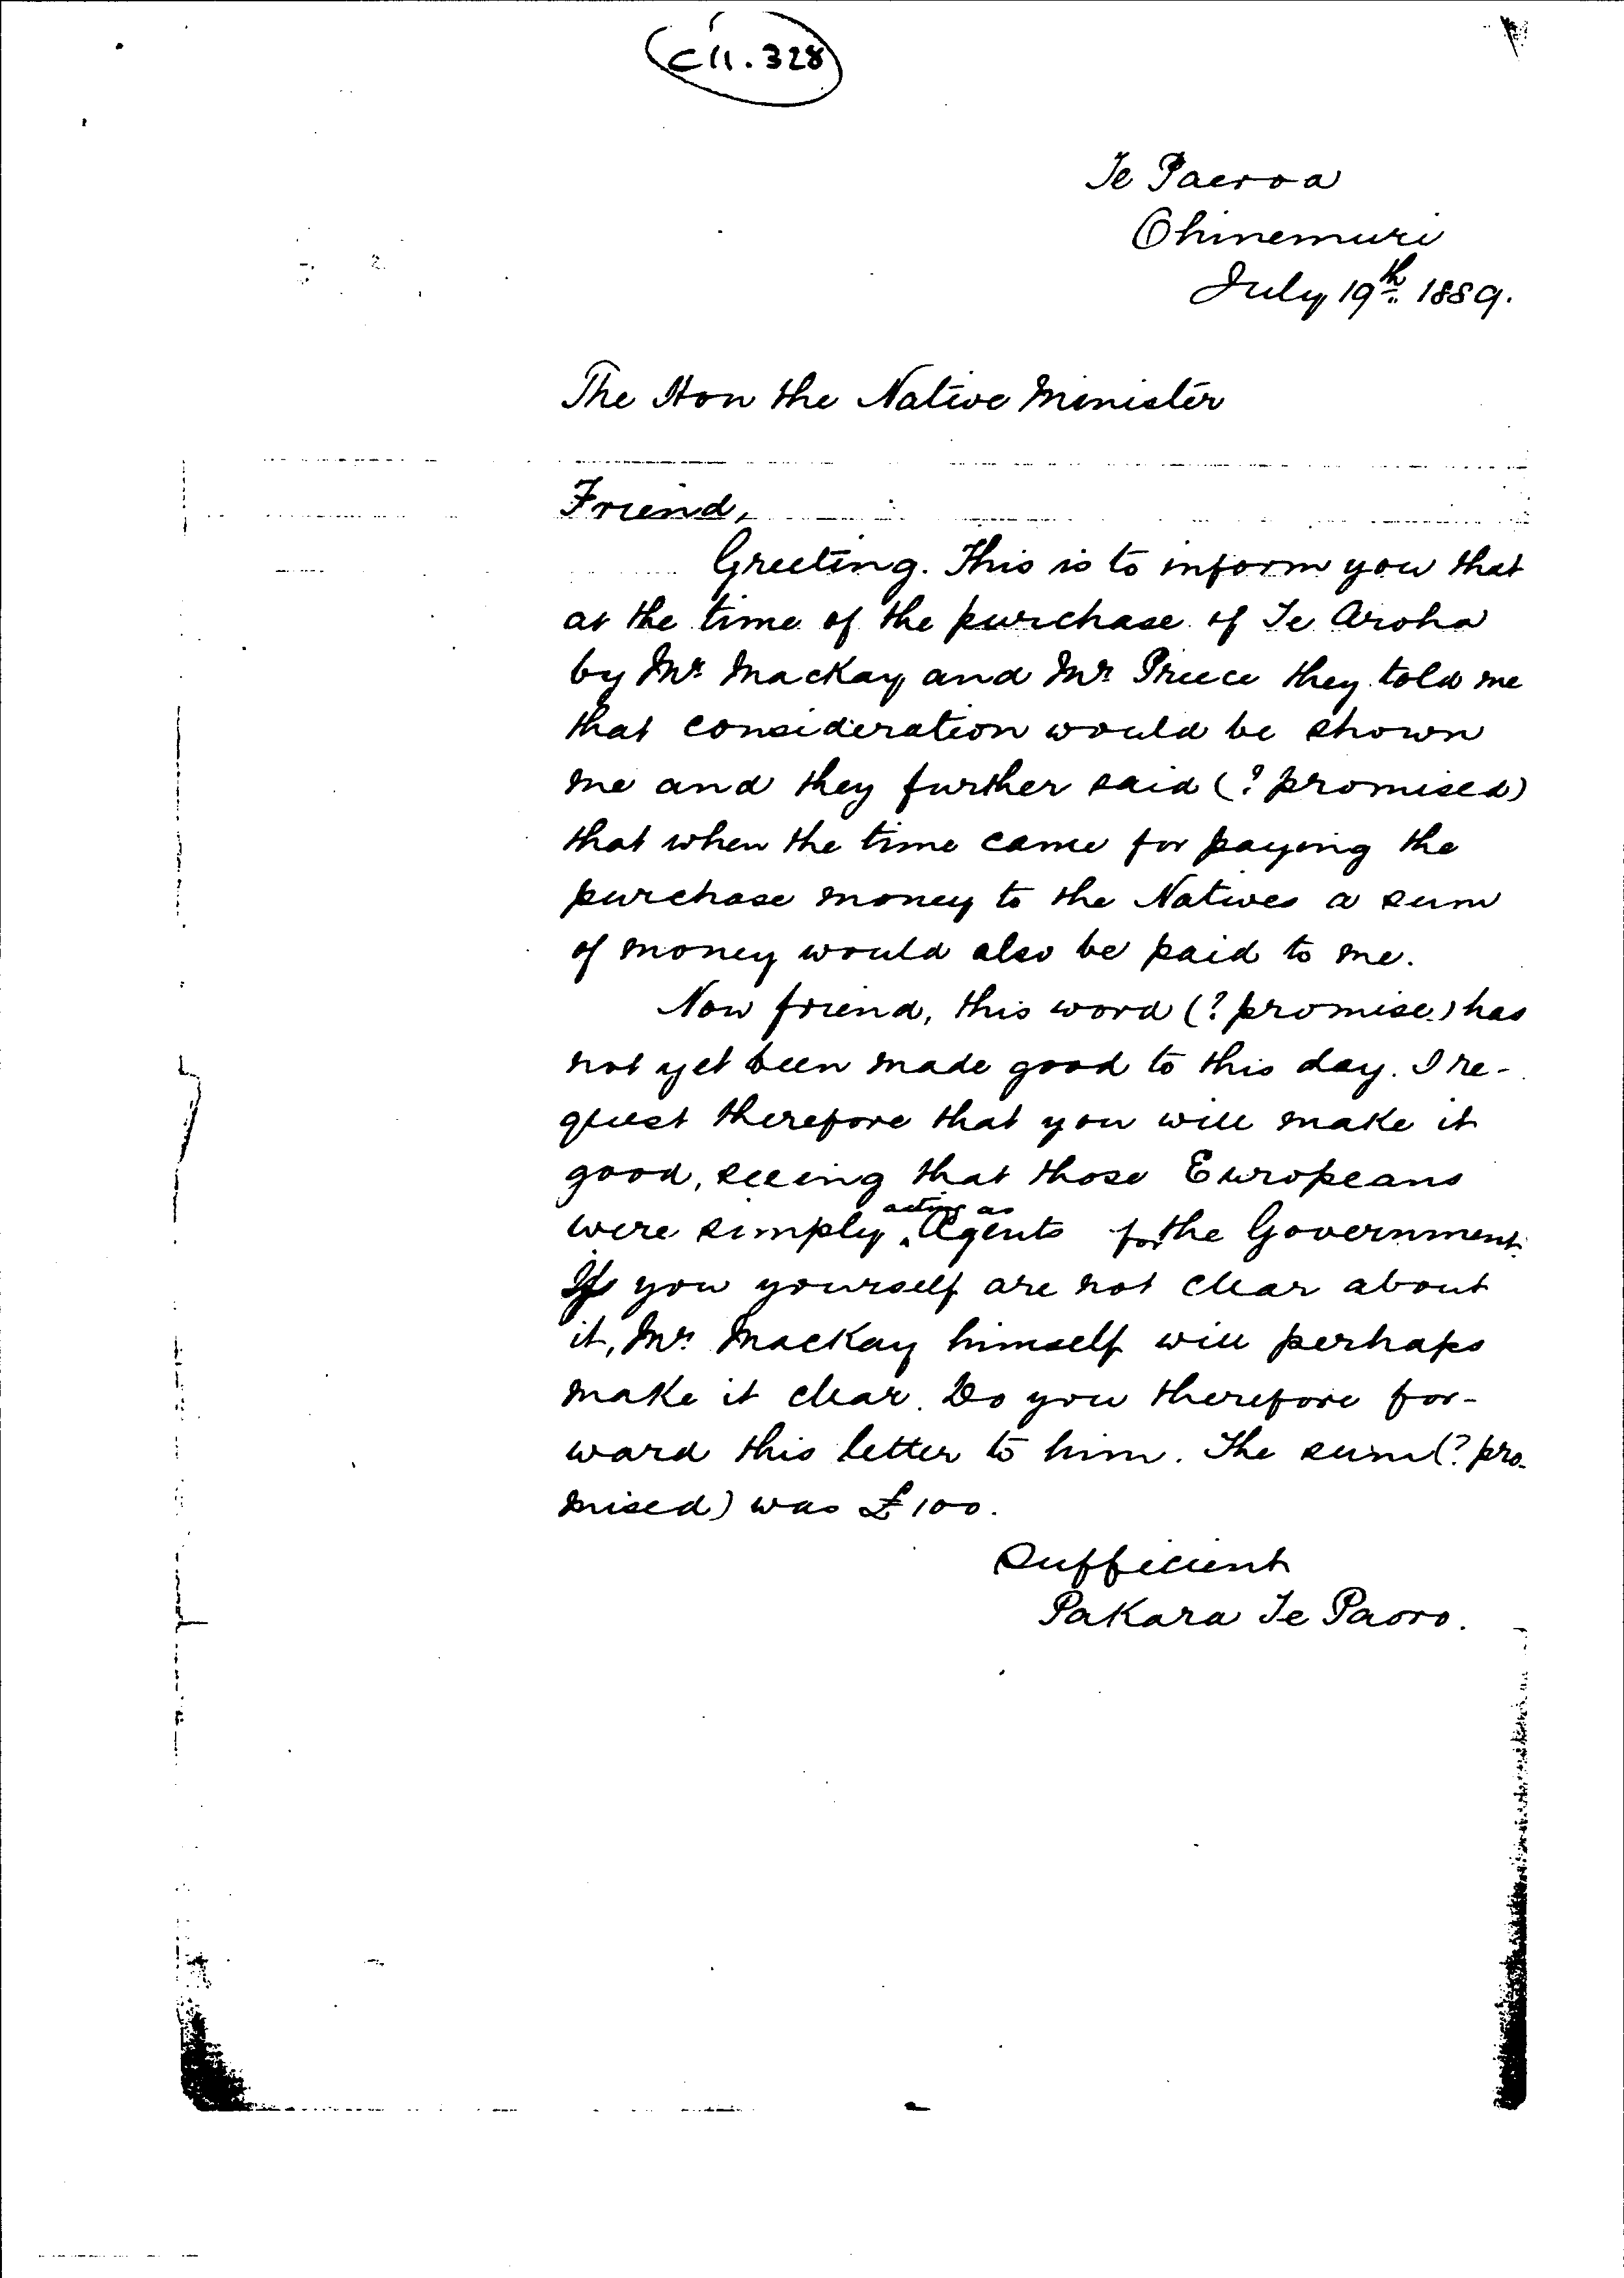 C11.328
Te Paeroa
Ohinemuri
July 19th 1889.
The Hon the Native Minister
Friend,
Greeting. This is to inform you that
at the time of the purchase of Te Aroha
by Mr Mackay and Mr Preece they told me
that consideration would be shown
me and they further said (? promised)
that when the time came for paying the
purchase money to the Natives a sum
of money would also be paid to me.
Now friend, this word (? promise) has
not yet been made good to this day. I re-
quest therefore that you will make it
good, seeing that those Europeans
were simply acting as Agents for the Government.
If you yourself are not clear about
it, Mr Mackay himself will perhaps
make it clear. Do you therefore for-
ward this letter to him. The sum (? pro-
mised) was £100.
Sufficient
Pakara Te Paoro.